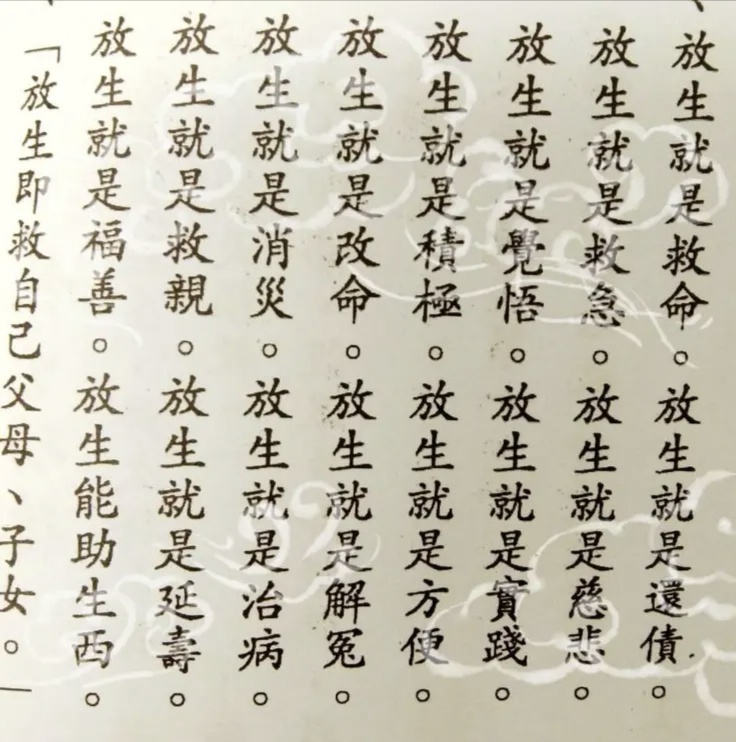 放生就是救命。放生就是還債。
放生就是救急。放生就是慈悲。
放生就是覺悟。放生就是實踐。
放生就是積極。放生就是方便。
放生就是改命。放生就是解冤。
放生就是消災。放生就是治病。
放生就是救親。放生就是延壽。
放生就是福善。放生能助生西。
「放生即救自己父母、子女。